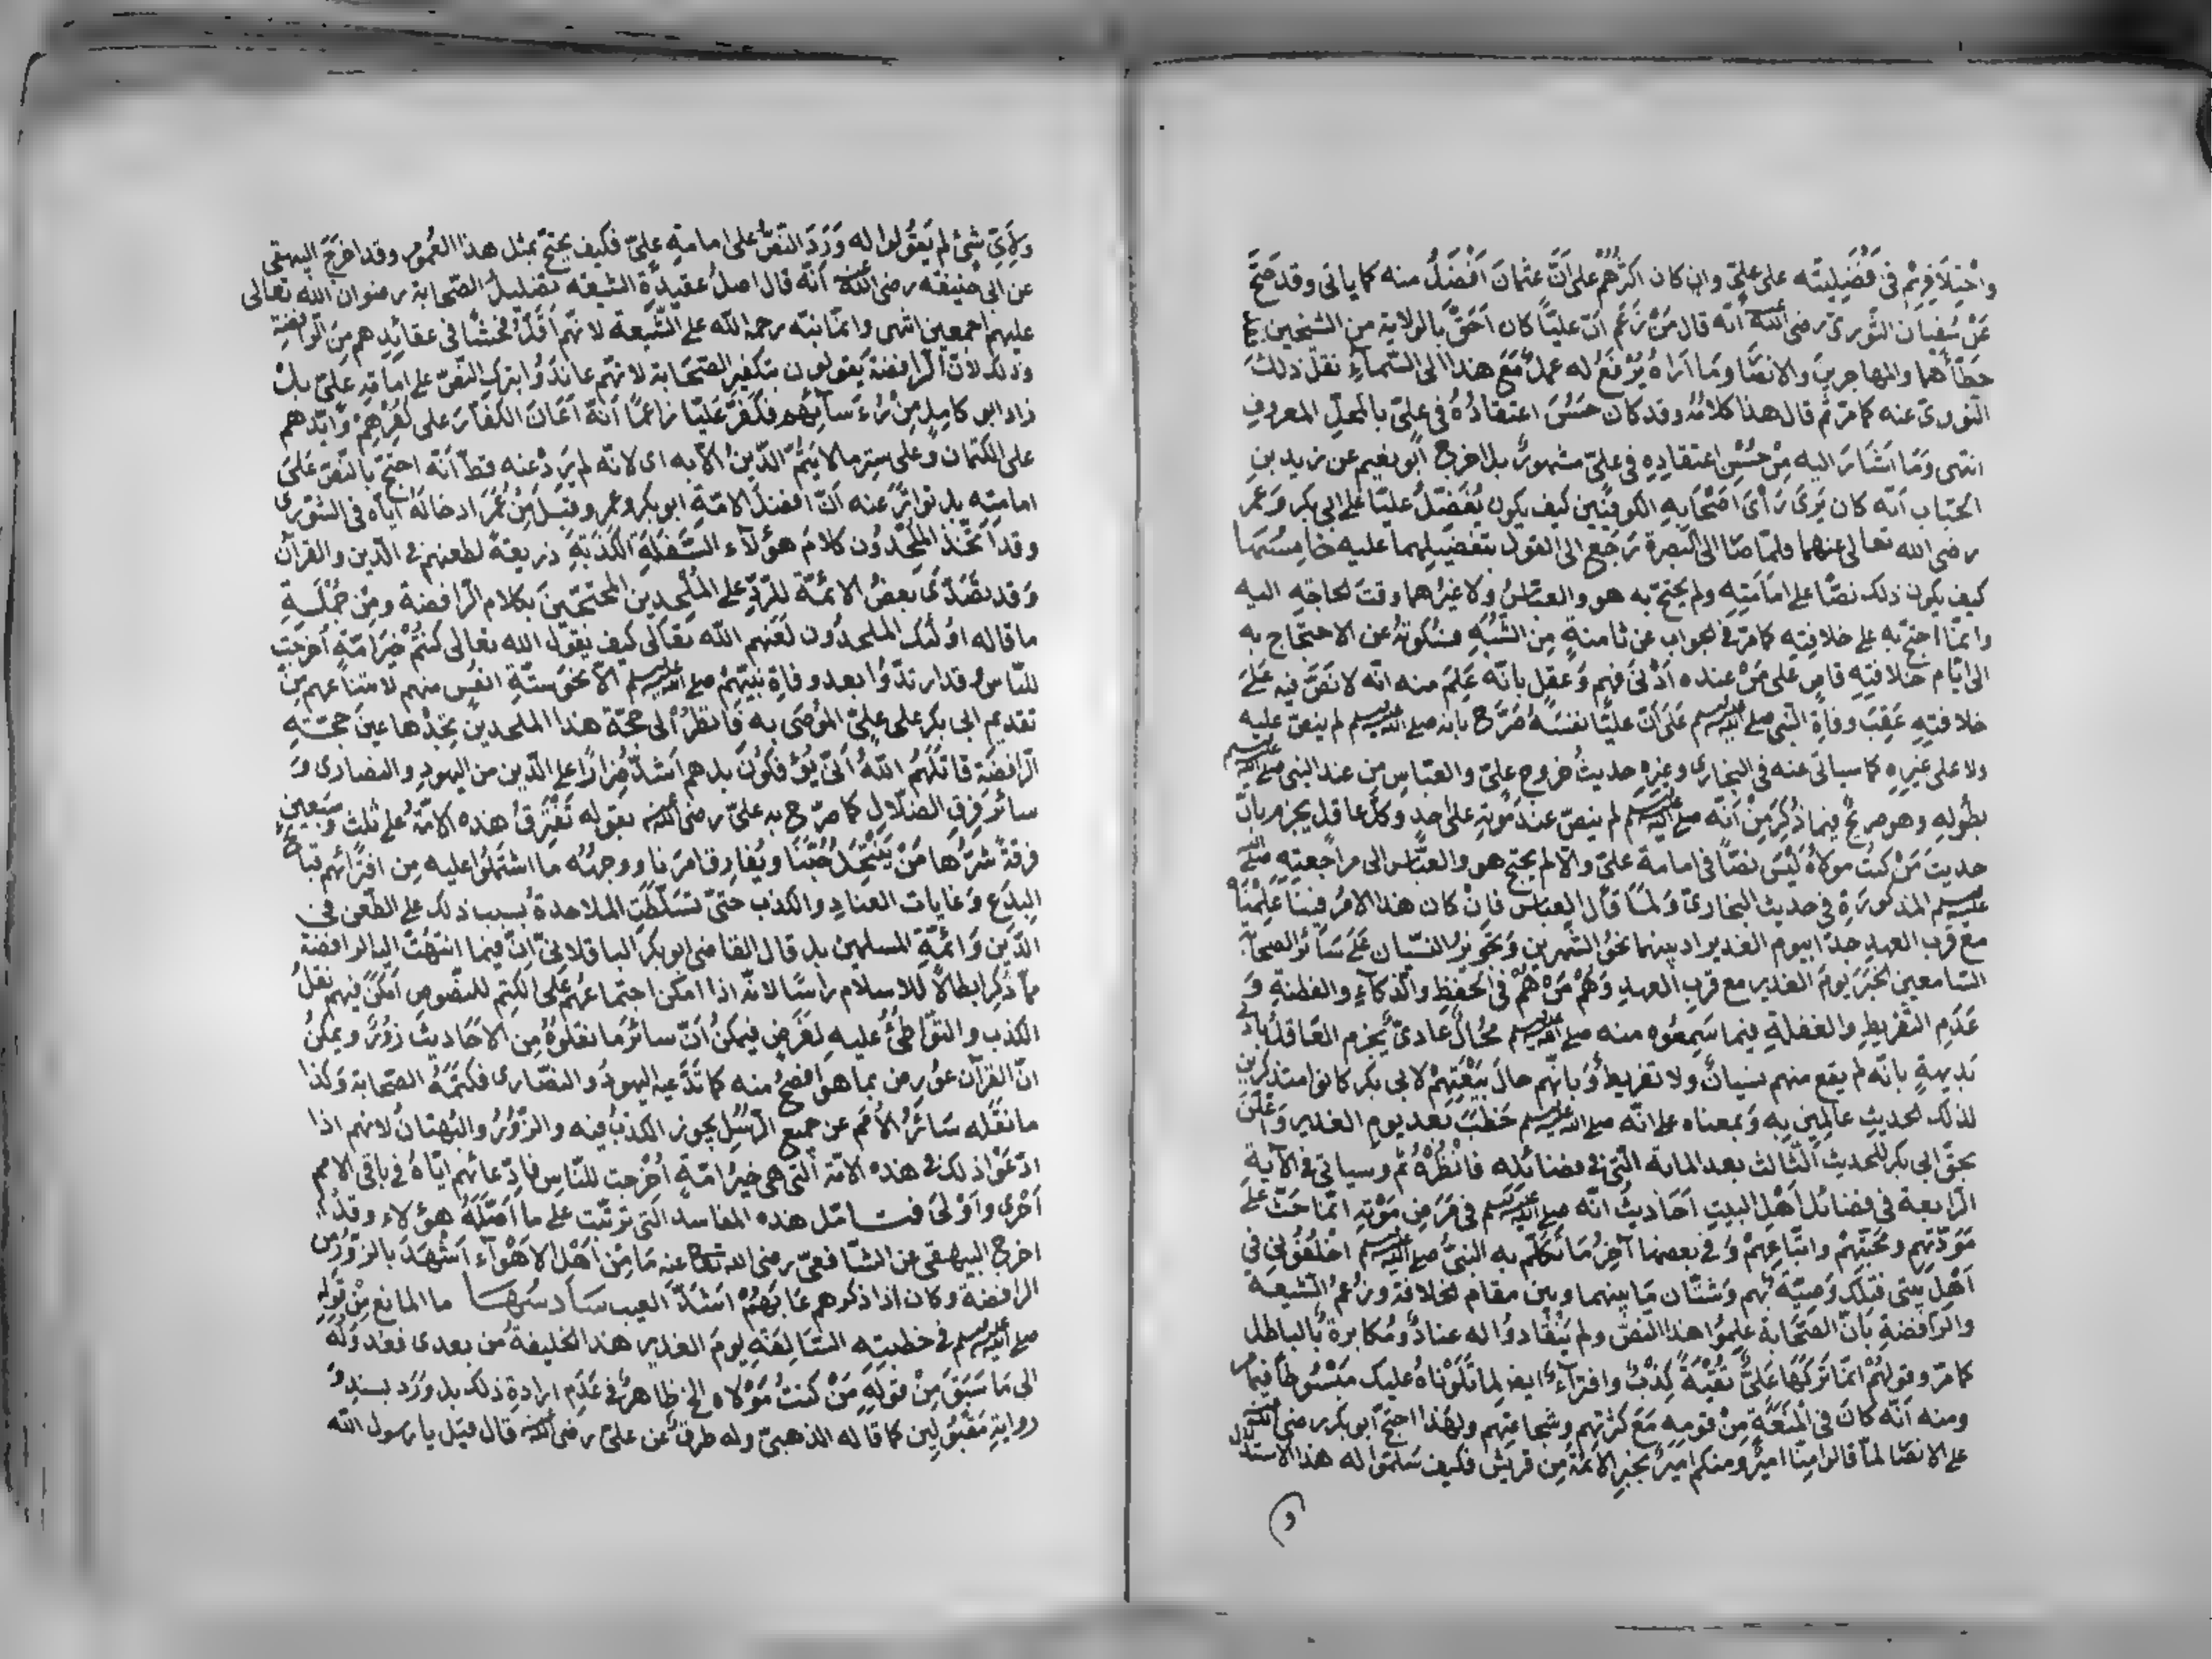 واختلافهم في افضليته على عليّ وان كان اكثرهم على انّ عثمان افضل منه كما ياتي وقد صحّ
عن سفيان الثوري رضي الله عنه انّه قال من زعم انّ عليّا كان احقّ بالولاية من الشيخين
خطّأهما والمهاجرين والانصار وما اراه يرفع له عمل مع هذا الى السّماء نقل ذلك
النووي عنه كما مرّ ثم قال هذا كلامه وقد كان حسن اعتقاده في عليّ بالمحلّ المعروف
انتهى وما اشار اليه من حسن اعتقاده في عليّ مشهور بل اخرج ابو نعيم عن زيد بن
الحباب انّه كان يرى رأى اصحابه الكوفيّين كيف يكون يفضّل عليّا على ابي بكر وعمر
رضي الله تعالى عنهما فلمّا صار الى البصرة رجع الى القول بتفضيلهما عليه خامسها
كيف يكون ذلك نصّا على امامته ولم يحتجّ به هو والعبّاس ولا غيرهما وقت الحاجة اليه
وانّما احتجّ به على خلافته كما مرّ في الجواب عن ثامنة من الشّبه فسكوته عن الاحتجاج به
الى ايّام خلافته قاض على من عنده ادنى فهم وعقل بانّه علم منه انّه لا نصّ فيه على
خلافته عقب وفاة النّبي صلى الله عليه وسلم على انّ عليّا نفسه صرّح بانه صلى الله عليه وسلم لم ينصّ عليه
ولا على غيره كما سياتي عنه في البخاري وغيره حديث خروج عليّ والعبّاس من عند النبي صلى الله عليه وسلم
بطوله وهو صريح فيما ذكر من انّه صلى الله عليه وسلم لم ينصّ عند موته على احد وكلّ عاقل يجزم بانّ
حديث من كنت مولاه ليس نصّا في امامة عليّ والّا لم يحتج هو والعبّاس الى مراجعته صلى الله
عليه وسلم المذكورة في حديث البخاري ولما قال العباس فان كان هذا الامر فينا علمناه
مع قرب العهد جدّا بيوم الغدير اذ بينهما نحو الشّهرين وتجويز النّسيان على سائر الصحابة
السّامعين لخبر يوم الغدير مع قرب العهد وهم من هم في الحفظ والذكاء والفطنة و
عدم التفريط والغفلة فيما سمعوه منه صلى الله عليه وسلم محال عاديّ يجزم العاقل بادنى
بديهة بانّه لم يقع منهم نسيان ولا تفريط وبانّهم حال بيعتهم لابي بكر كانوا متذكرين
لذلك الحديث عالمين به وبمعناه على انّه صلى الله عليه وسلم خطب بعد يوم الغدير واعلن
بحقّ ابي بكر للحديث الثّالث بعد الماية الّتي في فضائله فانظره ثمّ وسياتي في الآية
الرّابعة في فضائل اهل البيت احاديث انّه صلى الله عليه وسلم في مرض موته انّما حثّ على
مودّتهم ومحبّتهم واتّباعهم وفي بعضها آخر ما تكلّم به النبيّ صلى الله عليه وسلم اخلفوني في
اهل بيتي فتلك وصيّة بهم وشتّان ما بينهما وبين مقام الخلافة وزعم الشيعة
والرّافضة بانّ الصّحابة علموا هذا النصّ ولم ينقادوا له عناد ومكابرة بالباطل
كما مرّ وقولهم انّما تركها عليّ تقيّة كذب وافتراء ايضا لما تلوناه عليك مبسوطا فيما مر
ومنه انّه كان في المنعة من قومه مع كثرتهم وشجاعتهم ولهذا احتجّ ابو بكر رضي الله عنه
على الانصار لمّا قالوا منّا امير ومنكم امير بخبر الائمّة من قريش فكيف سلّموا له هذا الاستدلال
و
ولايّ شئ لم يقولوا له ورد النّصّ على امامة عليّ فكيف يحتجّ بمثل هذا العموم وقد اخرج البيهقي
عن ابي حنيفة رضي الله عنه انّه قال اصل عقيدة الشيعة تضليل الصّحابة رضوان الله تعالى
عليهم اجمعين انتهى وانّما نبّه رحمه الله على الشّيعة لانّهم اقلّ فحشا في عقائدهم من الرّافضة
وذلك لانّ الرّافضة يقولون بتكفير الصّحابة لانّهم عاندوا بترك النّصّ على امامة عليّ بل
زاد ابو كامل من رؤسائهم فكفّر عليّا زاعما انّه اعان الكفّار على كفرهم وايّدهم
على الكتمان وعلى ستر ما لا يتمّ الدّين الّا به اي لانّه لم يرد عنه قطّ انّه احتجّ بالنّصّ على
امامته بل تواتر عنه انّ افضل الامّة ابو بكر وعمر وقبل من عمر ادخاله ايّاه في الشّورى
وقد اتّخذ الملحدون كلام هؤلاء السّفلة الكذبة ذريعة لطعنهم في الدّين والقرآن
وقد تصدّى بعض الائمّة للرّدّ على الملحدين المحتجّين بكلام الرّافضة ومن جملة
ما قاله اولئك الملحدون لعنهم الله تعالى كيف يقول الله تعالى كنتم خير امّة اخرجت
للنّاس وقد ارتدّوا بعد وفاة نبيّهم صلى الله عليه وسلم الّا نحو ستّة انفس منهم لامتناعهم من
تقديم ابي بكر على عليّ الموصى به فانظر الى حجّة هذا الملحدين تجدها عين حجّته
الرّافضة قاتلهم الله انّى يؤفكون بل هم اشدّ ضررا على الدّين من اليهود والنصارى و
سائر فرق الضلال كما صرّح به عليّ رضي الله عنه بقوله تفترق هذه الامّة على ثلث وسبعين
فرقة شرّها من ينتحل حبّنا ويفارق امرنا ووجهه ما اشتملوا عليه من افترائهم قبائح
البدع وغايات العناد والكذب حتّى تسلّطت الملاحدة بسبب ذلك على الطّعن في
الدّين وائمّة المسلمين بل قال القاضي ابو بكر الباقلانيّ انّ فيما انتهت اليه الرافضة
ممّا ذكر ابطالا للاسلام راسا لانّه اذا امكن اجتماعهم على الكتم للنّصوص امكن فيهم نقل
الكذب والتّواطئ عليه لغرض فيمكن انّ سائر ما نقلوه من الاحاديث زور ويمكن
انّ القرآن عورض بما هو افصح منه كما تدّعيه اليهود والنصارى فكتمه الصّحابة وكذا
ما نقله سائر الامم عن جميع الرّسل يجوز الكذب فيه والزّور والبهتان لانهم اذا
ادّعوا ذلك في هذه الامّة الّتي هي خير امّة اخرجت للنّاس فادّعائهم ايّاه في باقي الامم
احرى واولى فتامّل هذه المفاسد الّتي ترتّبت على ما اصّله هؤلاء وقد
اخرج البيهقي عن الشّافعيّ رضي الله تعالى عنه ما من اهل الاهواء اشهد بالزّور من
الرافضة وكان اذا ذكرهم عابهم اشدّ العيب سادسها ما المانع من قوله
صلى الله عليه وسلم في خطبته السّالفة يوم الغدير هذا الخليفة من بعدى فعدوله
الى ما سبق من قوله من كنت مولاه الخ ظاهر في عدم ارادة ذلك بل ورد بسند و
رواية مقبولين كما قاله الذهبيّ وله طرق عن عليّ رضي الله عنه قال قيل يا رسول الله